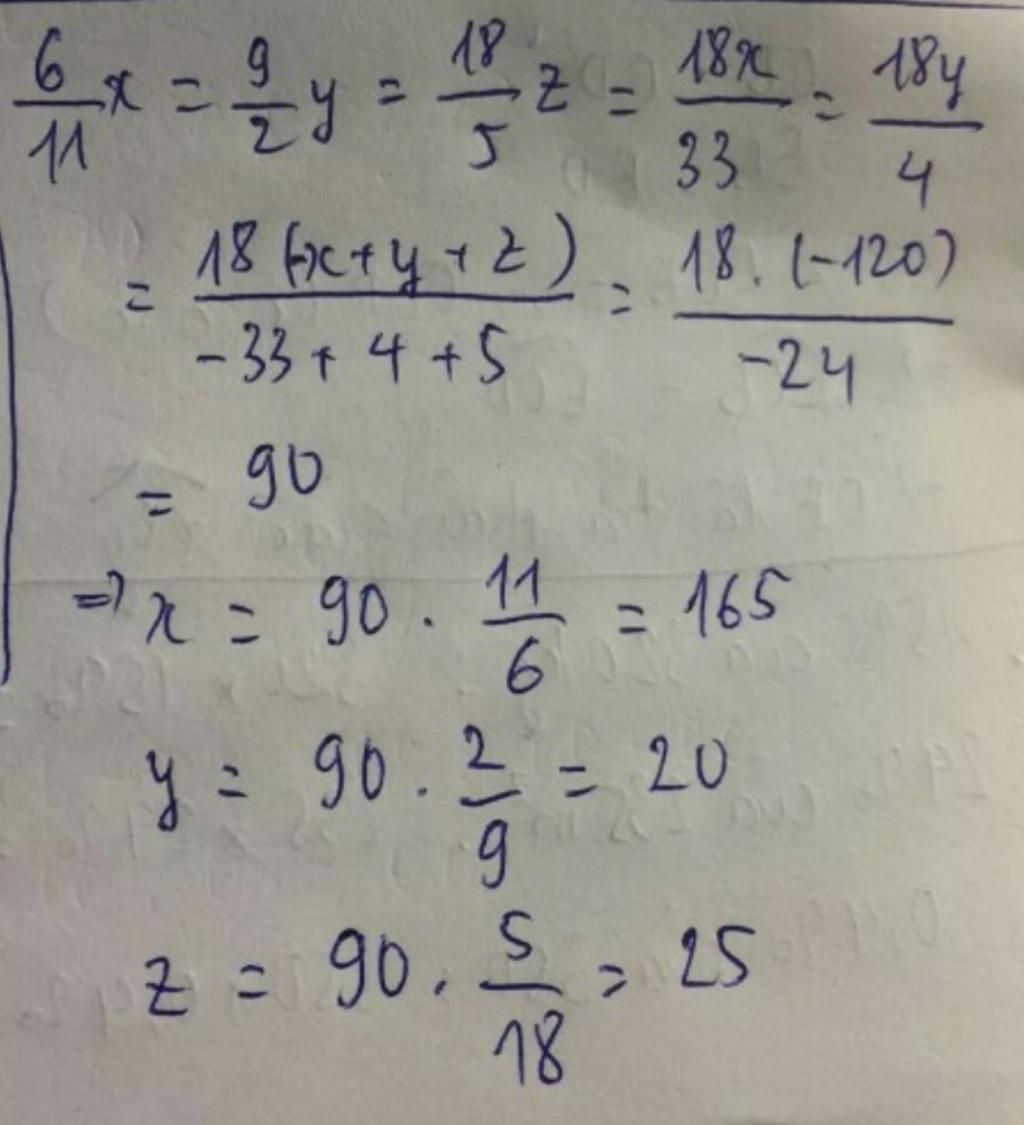 6/11 x = 9/2 y = 18/5 z = 18x/33 = 18y/4
= 18(-x+y+z)/-33+4+5 = 18.(-120)/-24
= 90
=> x = 90 . 11/6 = 165
y = 90 . 2/9 = 20
z = 90 . 5/18 = 25